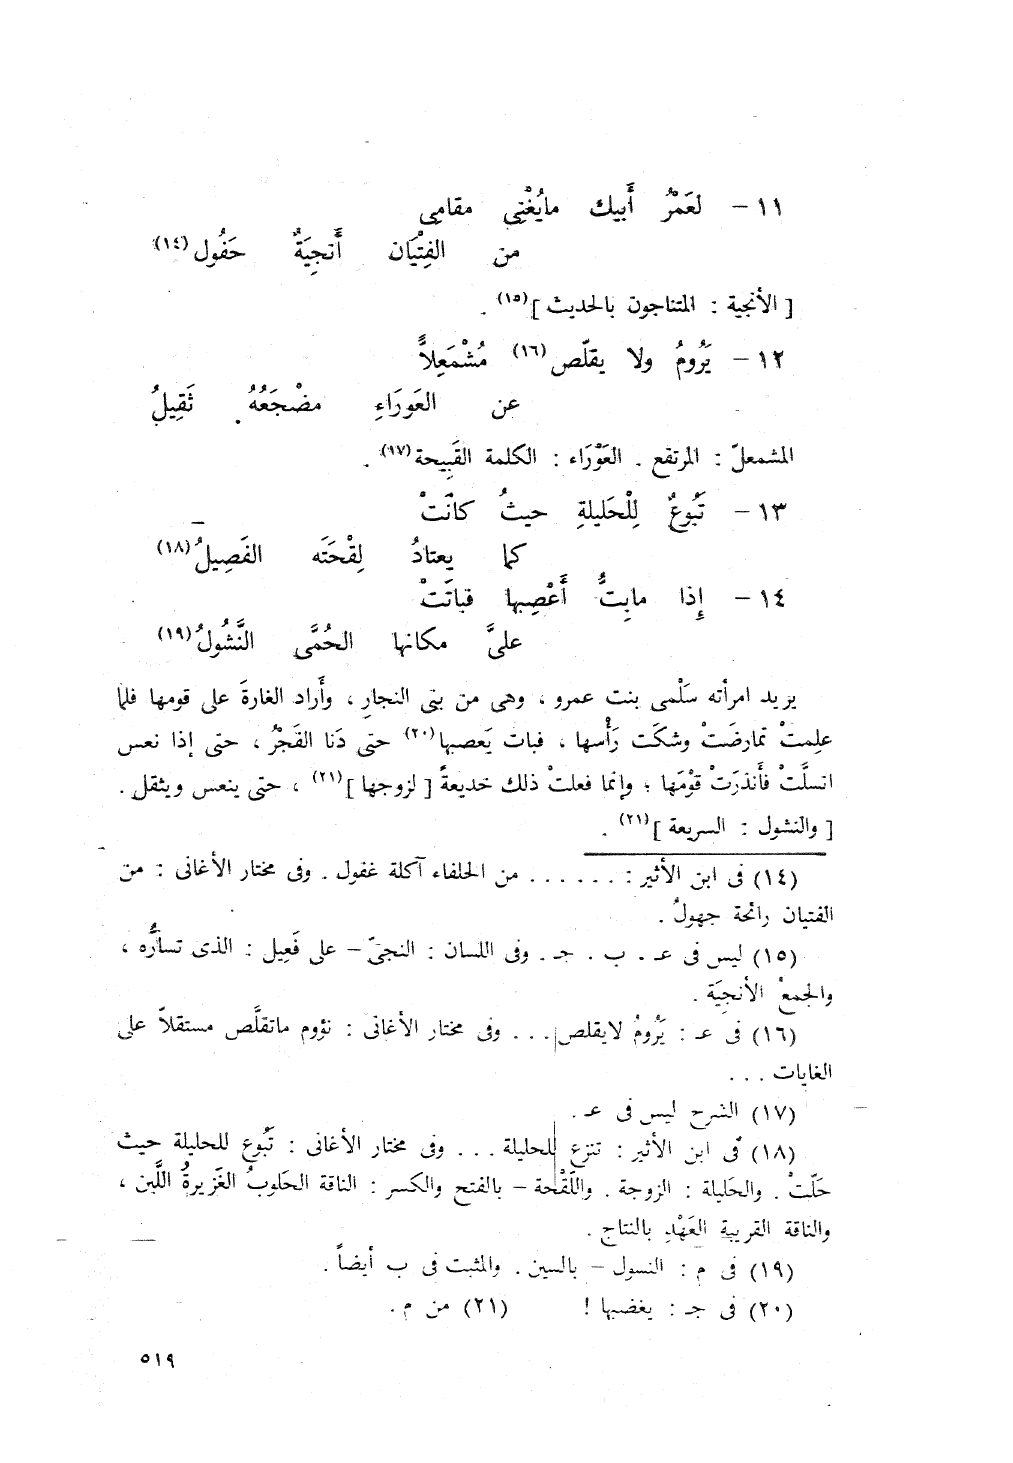 ١١ – لعَمْرُ أَبيك مايُغْنِى مقامى
من الفِتْيَان أَنجِيَةٌ حَفُول(١٤)
[ الأنجية : المتناجون بالحديث ](١٥) .
١٢ – يَرُومُ ولا يقلّص(١٦) مُشْمَعِلاًّ
عن العَورَاءِ مضْجَعُهُ ثَقِيلُ
المشمعلّ : المرتفع . العَوْرَاء : الكلمة القَبِيحة(١٧) .
١٣ – تَبُوعٌ لِلْحَليلةِ حيثُ كانَتْ
كما يعتادُ لِقْحَتَه الفَصِيلُ(١٨)
١٤ – إِذا مابِتُّ أَعْصِبها فباتَتْ
علىَّ مكانها الحُمَّى النَّشُولُ(١٩)
يريد امرأته سَلْمى بنت عمرو ، وهى من بنى النجارِ ، وأَراد الغارةَ على قومها فلما
علِمتْ تمارضَتْ وشكَت رَأْسها ، فبات يَعصبها(٢٠) حتى دَنا الفَجْرُ ، حتى إذا نعس
انسلَّتْ فأَنذرَتْ قوْمَها ؛ وإنما فعلتْ ذلك خديعةً [ لزوجها ](٢١) ، حتى ينعس ويثقل .
[ والنشول : السريعة ](٢١) .
(١٤) فى ابن الأثير : . . . . . . من الحلفاء آكلة غفول . وفى مختار الأغانى : من
الفتيان رائحة جهولُ .
(١٥) ليس فى عـ . ب . جـ . وفى اللسان : النجىّ – على فَعِيل : الذى تسارُّه ،
والجمعْ الأنجِيَة .
(١٦) فى عـ : يَرُومُ لايقلص . . . وفى مختار الأغانى : نؤوم ماتقلَّص مستقلاّ على
الغايات . . .
(١٧) الشرح ليس فى عـ .
(١٨) فى ابن الأثير : تنزع للحليلة . . . وفى مختار الأغانى : تَبُوع للحليلة حيث
حَلّتْ . والحَليلة : الزوجة . واللَقْحة – بالفتح والكسر : الناقة الحَلوبُ الغَزيرةُ اللَّبن ،
والناقة القريبة العَهْدِ بالنتاج .
(١٩) فى م : النسول – بالسين . والمثبت فى ب أيضاً .
(٢٠) فى جـ : يغضبها ! (٢١) من م .
٥١٩